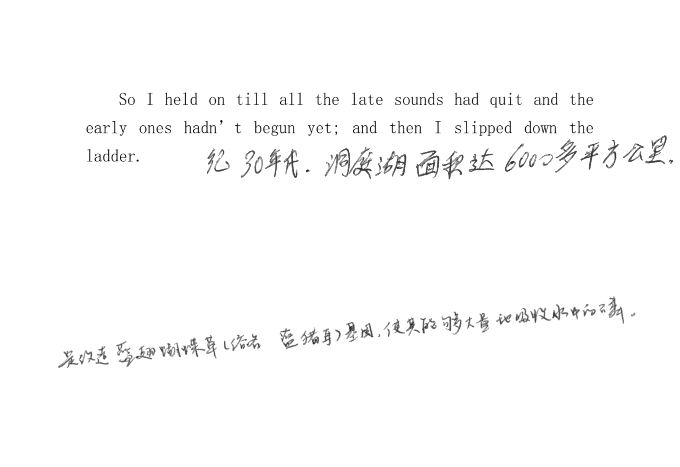 So I held on till all the late sounds had quit and the
early ones hadn't begun yet; and then I slipped down the
ladder.
纪30年代．洞庭湖面积达6000多平方公里．
是改造蓝翅蝴蝶草(俗名 蓝猪耳)基因，使其能够大量地吸收水中的磷。